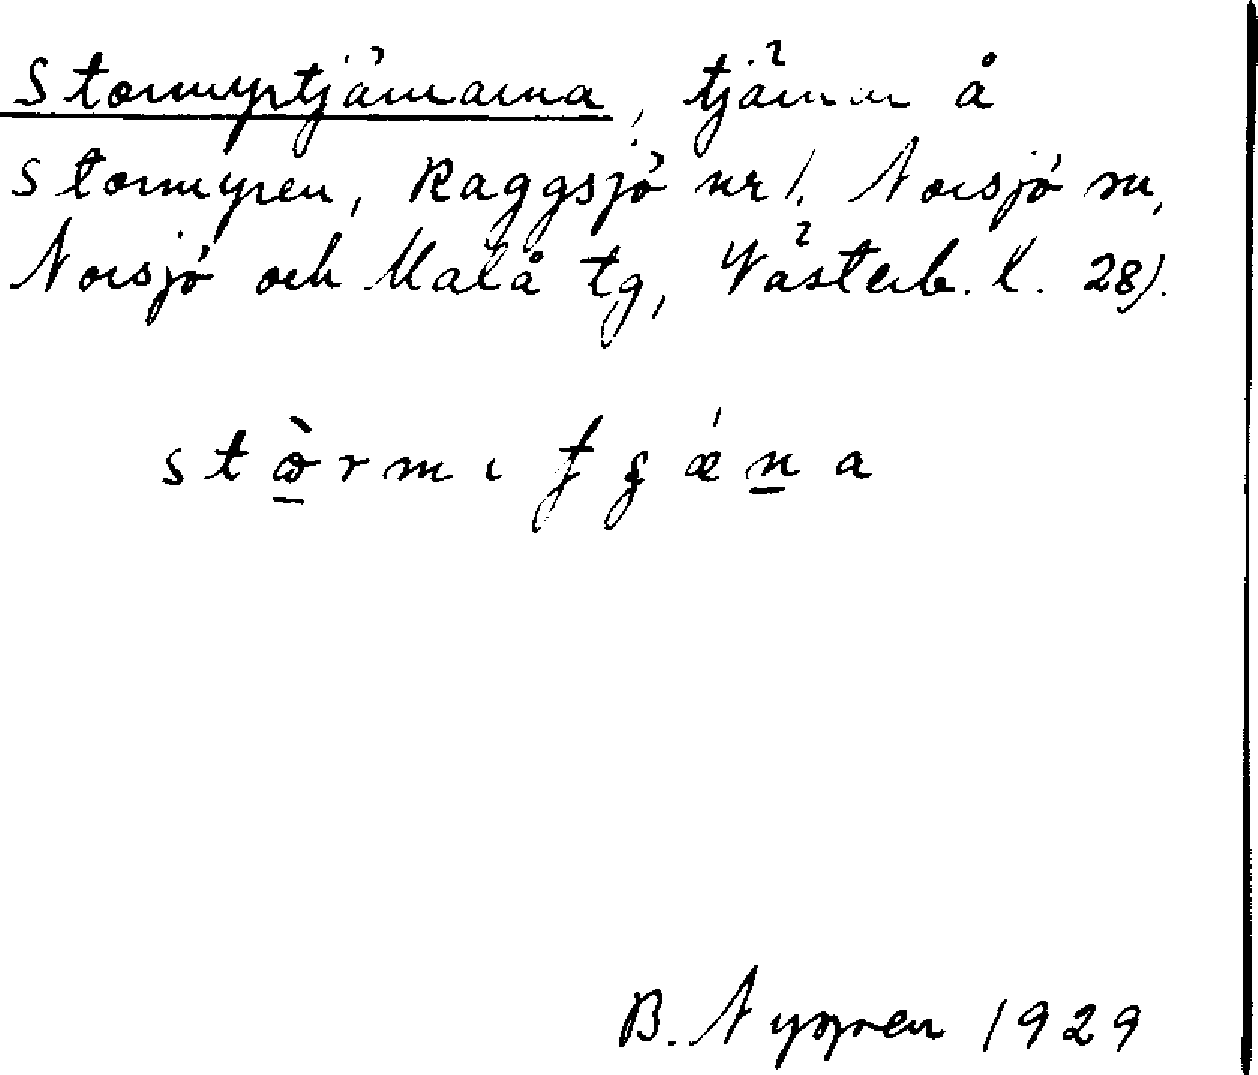 Stormyrtjärnarna, tjärnar å
Stormyren, Raggsjö nr 1. Norsjö sn,
Norsjö och Malå tg, Västerb. l. 28).
B. Nygren 1929